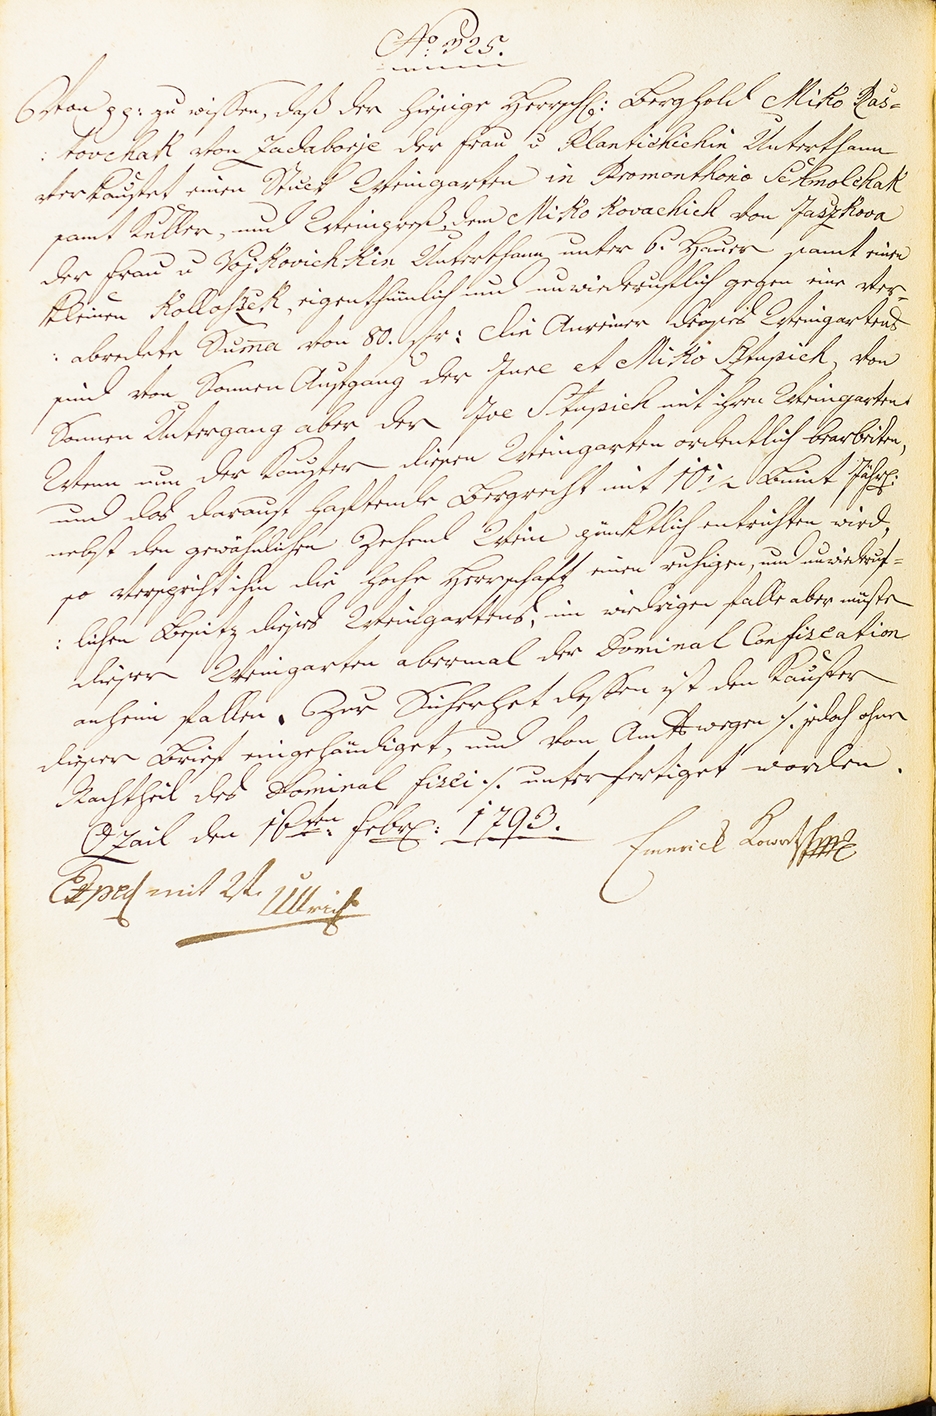 No 325.
pp: zu wissen, daß der hiesige Herrsch: Berghold Miko Ras=
:tovchak von Zadaborje der Frau v Plantichichin Unterthann
verkaufet einen Stuck Weingarten in Promonthorio Schmolchak
samt Keller, und Weinpreß, dem Miko Kovachich von Jaszkova
der Frau v Vojkovichkin Unterthann unter 6. Hauer samt einen
kleinen Kolloszek, eigenthümlich und unwiederuflich gegen eine ver-
:abredete Summa von 80. fr: Die Anreiner dieses Weingartens
sind von Sonnen Aufgang der Jure et Miko Stupich, von
Sonnen Untergang aber der Ive Stupich mit ihren Weingarten.
Wenn nun der Kaufer diesen Weingarten ordentlich bearbeiten,
und das darauf haftende Bergrecht mit 10 1/2 Bint Jährl:
nebst den gewöhnlichen Zehend Wein pünktlich entrichten wird,
so verspricht ihm die hoche Herrschaft einen ruhigen, und unwiederuf=
:lichen Besitz dieses Weingartens, im wiedrigen falle aber müste
dieser Weingarten abermal der Dominal Confiscation
anheim fallen. Zur Sicherhet dessen ist den Kaufer
dieser Brief eingehändiget, und von Amtswegen ./. jedoch ohne
Nachtheil des Dominal fisci ./. unterfertiget worden.
Ozail den 16ten Febr: 1793. Emerich
mit Ullrich